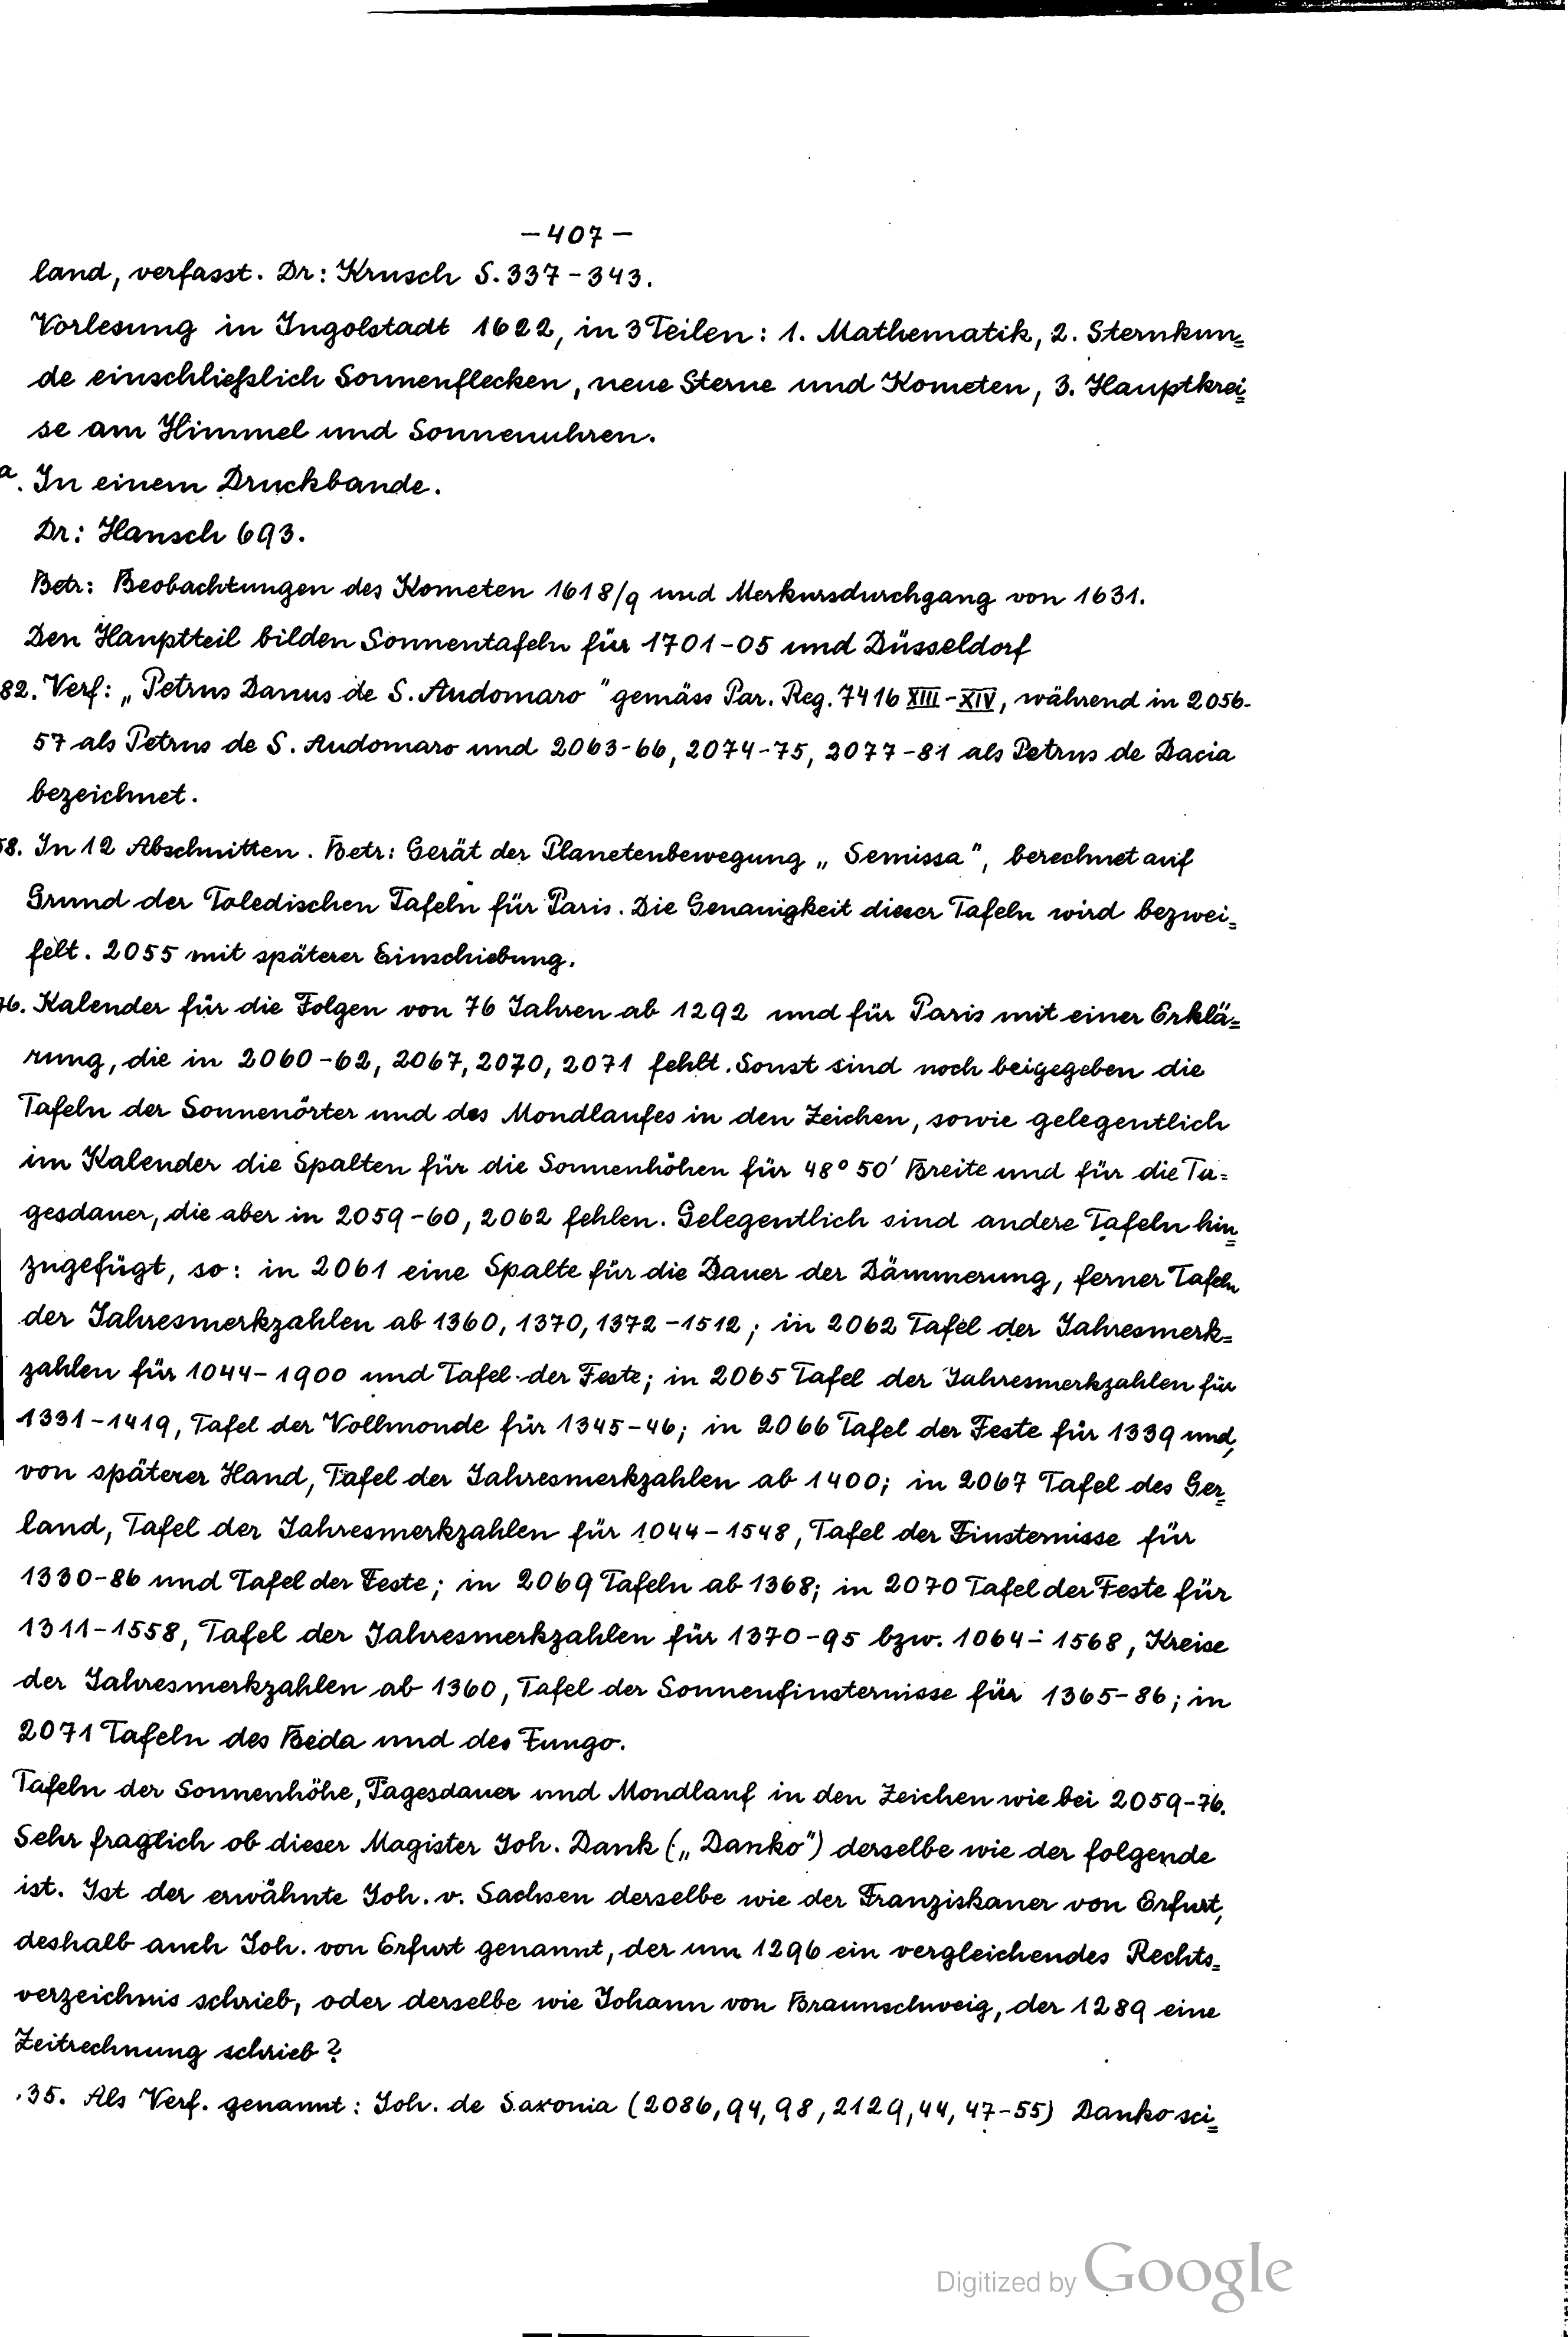 – 407 –
land, verfasst. Dr: Krusch S. 337-343.
Vorlesung in Ingolstadt 1622, in 3 Teilen: 1. Mathematik, 2. Sternkun=
de einschließlich Sonnenflecken, neue Sterne und Kometen, 3. Hauptkrei=
se am Himmel und Sonnenuhren.
a. In einem Druckbande.
Dr: Hansch 693.
Betr: Beobachtungen des Kometen 1618/9 und Merkursdurchgang von 1631.
Den Hauptteil bilden Sonnentafeln für 1701-05 und Düsseldorf
82. Verf: „Petrus Danus de S. Audomaro" gemäss Par. Reg. 7416 XIII-XIV, während in 2056-
57 als Petrus de S. Audomaro und 2063-66, 2074-75, 2077-81 als Petrus de Dacia
bezeichnet.
58. In 12 Abschnitten. Betr: Gerät der Planetenbewegung „Semissa", berechnet auf
Grund der Toledischen Tafeln für Paris. Die Genauigkeit dieser Tafeln wird bezwei=
felt. 2055 mit späterer Einschiebung.
76. Kalender für die Folgen von 76 Jahren ab 1292 und für Paris mit einer Erklä=
rung, die in 2060-62, 2067, 2070, 2071 fehlt. Sonst sind noch beigegeben die
Tafeln der Sonnenörter und des Mondlaufes in den Zeichen, sowie gelegentlich
im Kalender die Spalten für die Sonnenhöhen für 48° 50' Breite und für die Ta=
gesdauer, die aber in 2059-60, 2062 fehlen. Gelegentlich sind andere Tafeln hin=
zugefügt, so: in 2061 eine Spalte für die Dauer der Dämmerung, ferner Tafeln
der Jahresmerkzahlen ab 1360, 1370, 1372-1512; in 2062 Tafel der Jahresmerk=
zahlen für 1044-1900 und Tafel der Feste; in 2065 Tafel der Jahresmerkzahlen für
1331-1419, Tafel der Vollmonde für 1345-46; in 2066 Tafel der Feste für 1339 und,
von späterer Hand, Tafel der Jahresmerkzahlen ab 1400; in 2067 Tafel des Ger=
land, Tafel der Jahresmerkzahlen für 1044-1548, Tafel der Finsternisse für
1330-86 und Tafel der Feste; in 2069 Tafeln ab 1368; in 2070 Tafel der Feste für
1311-1558, Tafel der Jahresmerkzahlen für 1370-95 bzw. 1064-1568, Kreise
der Jahresmerkzahlen ab 1360, Tafel der Sonnenfinsternisse für 1365-86; in
2071 Tafeln des Beda und des Fungo.
Tafeln der Sonnenhöhe, Tagesdauer und Mondlauf in den Zeichen wie bei 2059-76.
Sehr fraglich ob dieser Magister Joh. Dank („Danko") derselbe wie der folgende
ist. Ist der erwähnte Joh. v. Sachsen derselbe wie der Franziskaner von Erfurt,
deshalb auch Joh. von Erfurt genannt, der um 1296 ein vergleichendes Rechts=
verzeichnis schrieb, oder derselbe wie Johann von Braunschweig, der 1289 eine
Zeitrechnung schrieb?
35. Als Verf. genannt: Joh. de Saxonia (2086, 94, 98, 2129, 44, 47-55) Danko sci=
Digitized by Google